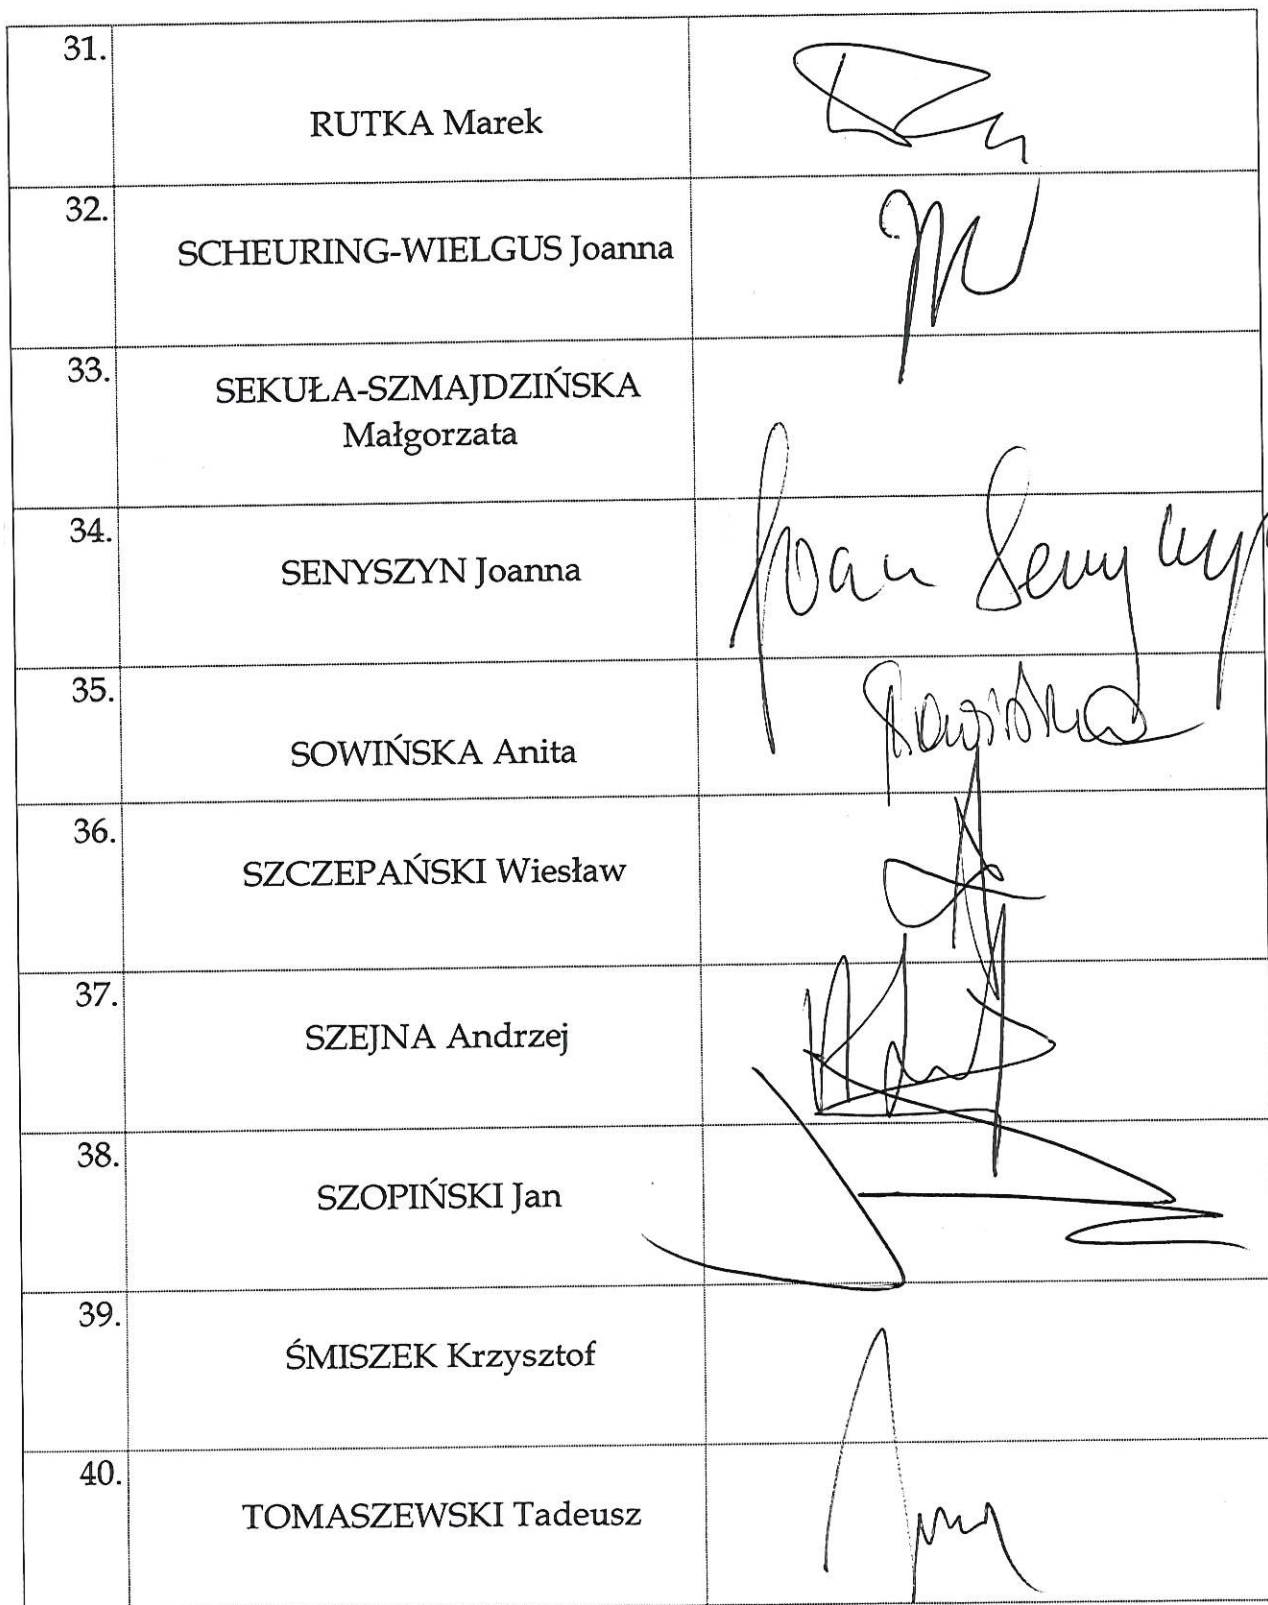 31.
RUTKA Marek
32.
SCHEURING-WIELGUS Joanna
33.
SEKUŁA-SZMAJDZIŃSKA
Małgorzata
34.
SENYSZYN Joanna
35.
SOWIŃSKA Anita
Sowińska
36.
SZCZEPAŃSKI Wiesław
37.
SZEJNA Andrzej
38.
SZOPIŃSKI Jan
39.
ŚMISZEK Krzysztof
40.
TOMASZEWSKI Tadeusz